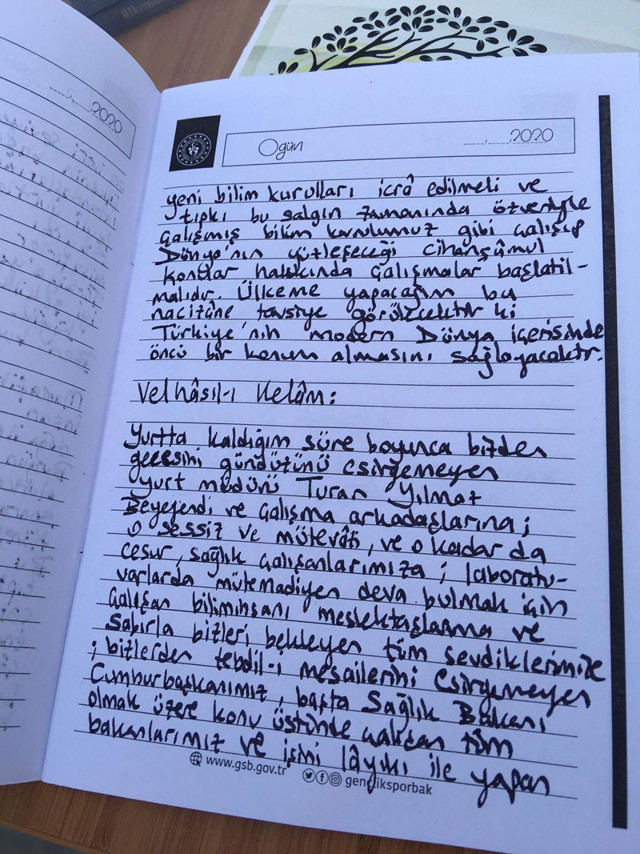 Ülkemi
2020
O gün
2020
yeni bilim kurulları icrâ edilmeli ve
tıpkı bu salgın zamanında özveriyle
çalışmış bilim kurulumuz gibi çalışıp
Dünya'nın yüzleşeceği cihanşümul
konular hakkında çalışmalar başlatıl-
malıdır. Ülkeme yapacağım bu
nacizâne tavsiye görülecektir ki
Türkiye'nin modern Dünya içerisinde
öncü bir konum almasını sağlayacaktır.
Velhâsıl-ı Kelâm:
Yurtta kaldığım süre boyunca bizden
gecesini gündüzünü esirgemeyen
yurt müdürü Turan Yılmaz
Beyefendi ve çalışma arkadaşlarına;
o sessiz ve mütevâzı, ve o kadar da
cesur, sağlık çalışanlarımıza; laboratu-
varlarda mütemadiyen deva bulmak için
çalışan biliminsanı meslektaşlarıma ve
sabırla bizleri bekleyen tüm sevdiklerimize
; bizlerden tebdil-i mesailerini esirgemeyen
Cumhurbaşkanımız, başta Sağlık Bakanı
olmak üzere konu üstünde çalışan tüm
bakanlarımız ve işini lâyıkı ile yapan
www.gsb.gov.tr gencliksporbak